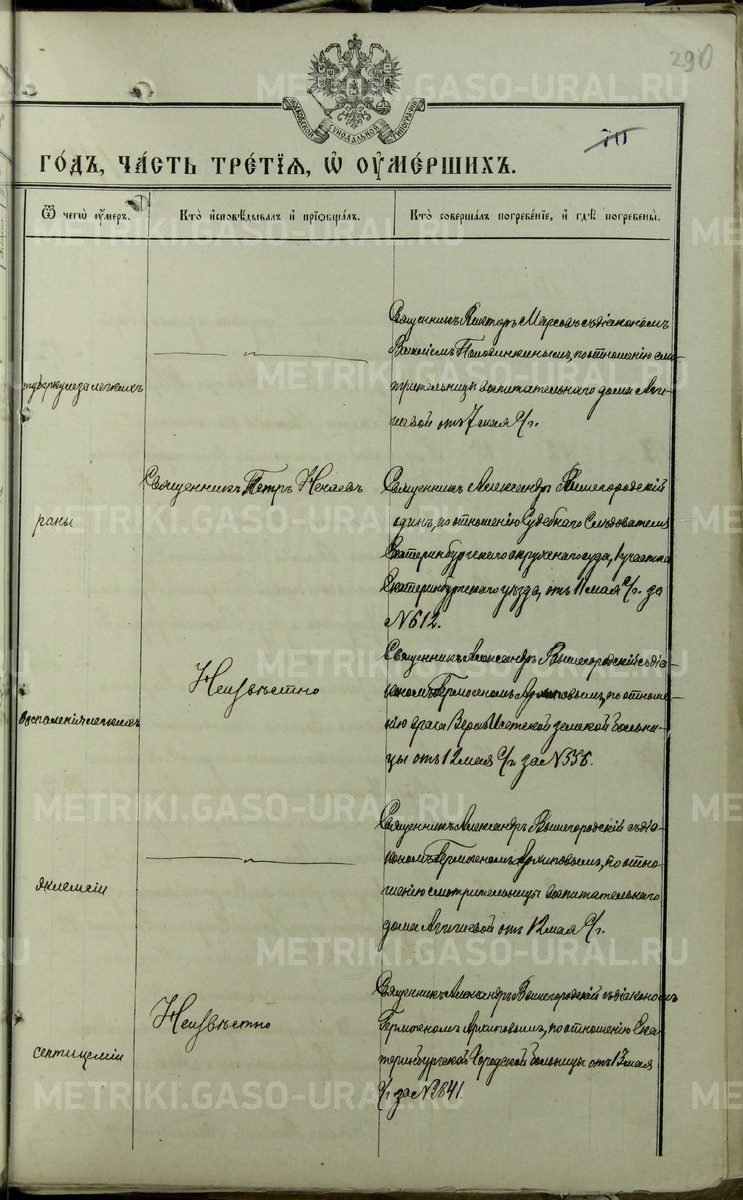 290
МОСКОВСКОЙ СѴНОДАЛЬНОЙ ТИПОГРАФІИ
ГО́ДЪ, ЧА́СТЬ ТРЕ́ТІѦ, Ѡ҆ ОУ҆МЕ́РШИХЪ.
Ѿ чегѡ̀ оу҆́меръ.
Кто̀ и҆сповѣ́дывалъ и҆ прїѡбща́лъ.
Кто̀ соверша́лъ погребе́нїе, и҆ гдѣ̀ погребены̀.
туберкулеза легкихъ
— „ —
Священникъ Викторъ Марсовъ съ діакономъ
Василіемъ Половинкинымъ, по отношенію смо-
трительницы воспитательнаго дома Агги-
шевой отъ 7 мая с/г.
раны
Священникъ Петръ
Священникъ Александръ Вышегородскій
одинъ, по отношенію Судебнаго Слѣдователя
Екатеринбургскаго окружнаго суда, 1 участка
Екатеринбургскаго уѣзда, отъ 11 мая с/г. за
№ 612.
воспаленія легкихъ
Неизвѣстно
Священникъ Александръ Вышегородскій съ діа-
кономъ Гермогеномъ Архиповымъ, по отноше-
нію врача Верхъ-Исетской земской больни-
цы отъ 12 мая с/г. за № 556.
эклемсіи
— „ —
Священникъ Александръ Вышегородскій съ діа-
кономъ Гермогеномъ Архиповымъ, по отно-
шенію смотрительницы воспитательнаго
дома Аггишевой отъ 12 мая с/г.
септицеміи
Неизвѣстно
Священникъ Александръ Вышегородскій съ діакономъ
Гермогеномъ Архиповымъ, по отношенію Ека-
теринбургской Городской больницы отъ 13 мая
с/г за № 2841.
METRIKI.GASO-URAL.RU